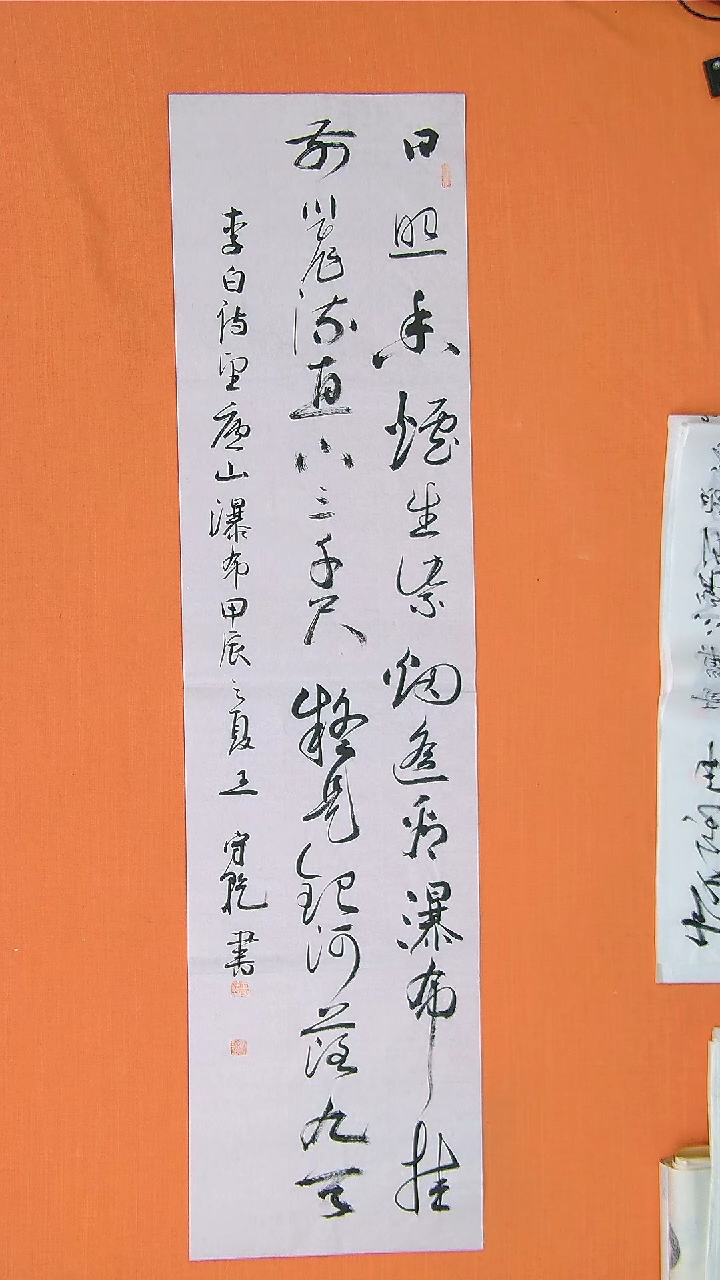 日照香爐生紫烟遙看瀑布挂
前川飛流直下三千尺疑是銀河落九天
李白詩望廬山瀑布甲辰之夏王守乾書